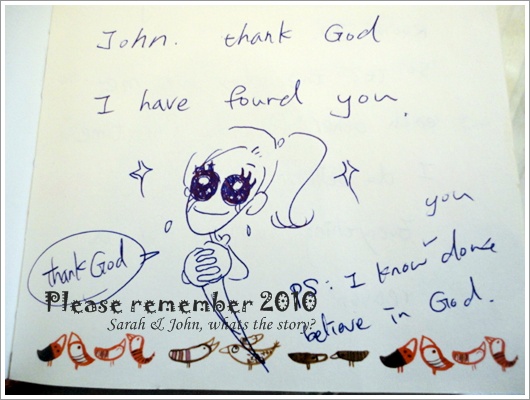 John. thank God
I have found you.
thank God
you
PS: I know done
believe in God.
Please remember 2010
Sarah & John, whats the story?